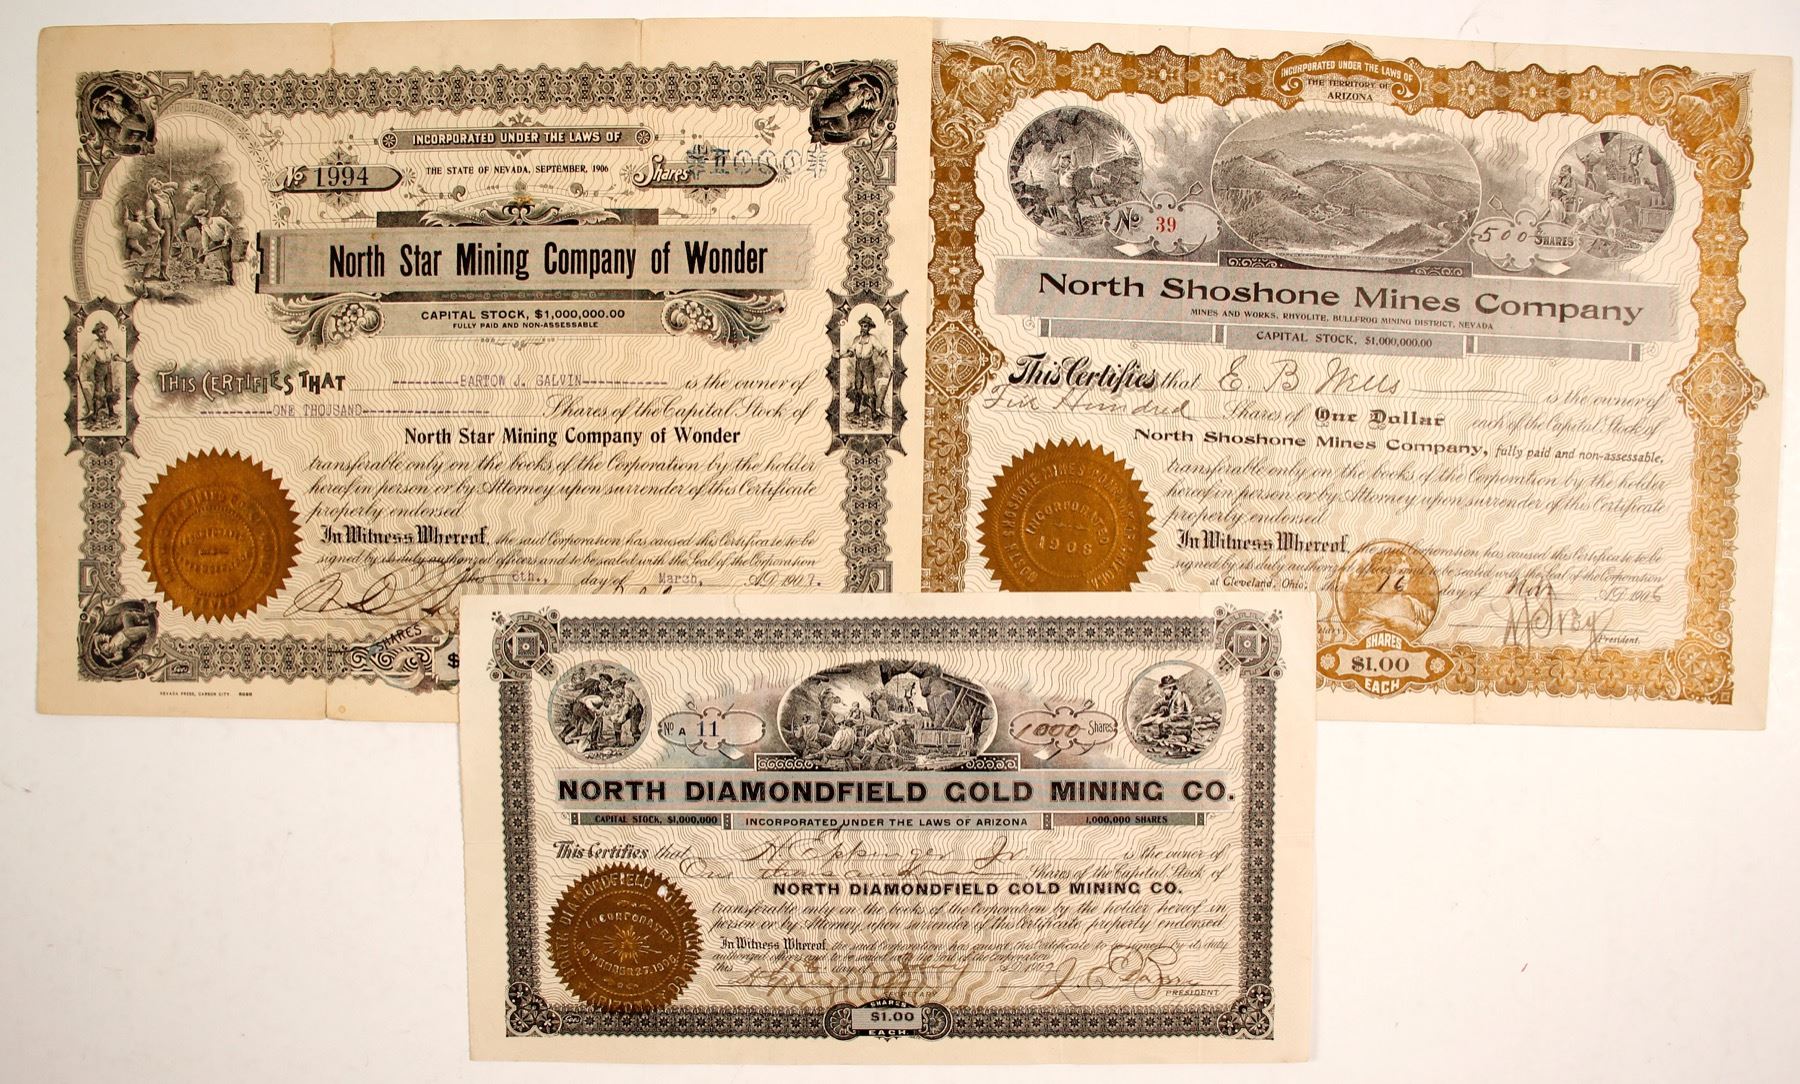 INCORPORATED UNDER THE LAWS OF
THE STATE OF NEVADA, SEPTEMBER, 1906
No 1994
Shares 1000
North Star Mining Company of Wonder
CAPITAL STOCK, $1,000,000.00
FULLY PAID AND NON-ASSESSABLE
THIS CERTIFIES THAT BARTON J. GALVIN is the owner of
ONE THOUSAND Shares of the Capital Stock of
North Star Mining Company of Wonder
transferable only on the books of the Corporation by the holder
hereof in person or by Attorney upon surrender of this Certificate
properly endorsed.
In Witness Whereof, the said Corporation has caused this Certificate to be
signed by its duly authorized officers and to be sealed with the Seal of the Corporation
this 6th., day of March, A.D. 1907.
SHARES
$
NEVADA PRESS, CARSON CITY
INCORPORATED UNDER THE LAWS OF
THE TERRITORY OF
ARIZONA
No 39
500 SHARES
North Shoshone Mines Company
MINES AND WORKS, RHYOLITE, BULLFROG MINING DISTRICT, NEVADA
CAPITAL STOCK, $1,000,000.00
This Certifies that E. B Wells is the owner of
Five Hundred Shares of One Dollar each of the Capital Stock of
North Shoshone Mines Company, fully paid and non-assessable,
transferable only on the books of the Corporation by the holder
hereof in person or by Attorney upon surrender of this Certificate
properly endorsed.
In Witness Whereof, the said Corporation has caused this Certificate to be
signed by its duly authorized officers and to be sealed with the Seal of the Corporation
at Cleveland, Ohio, this 16 day of Nov A.D. 1906
President.
SHARES
$1.00
EACH
NORTH SHOSHONE MINES COMPANY
INCORPORATED
No A 11
1000 Shares
NORTH DIAMONDFIELD GOLD MINING CO.
CAPITAL STOCK, $1,000,000
INCORPORATED UNDER THE LAWS OF ARIZONA
1,000,000 SHARES
This Certifies that H Eppinger Jr. is the owner of
One thousand Shares of the Capital Stock of
NORTH DIAMONDFIELD GOLD MINING CO.
transferable only on the books of the Corporation by the holder hereof in
person or by Attorney upon surrender of this Certificate properly endorsed
In Witness Whereof, the said Corporation has caused this Certificate to be signed by its duly
authorized officers and to be sealed with the Seal of the Corporation
this day of A.D. 1907
SECRETARY
PRESIDENT
SHARES
$1.00
EACH
NORTH DIAMONDFIELD GOLD MINING CO.
INCORPORATED
ARIZONA